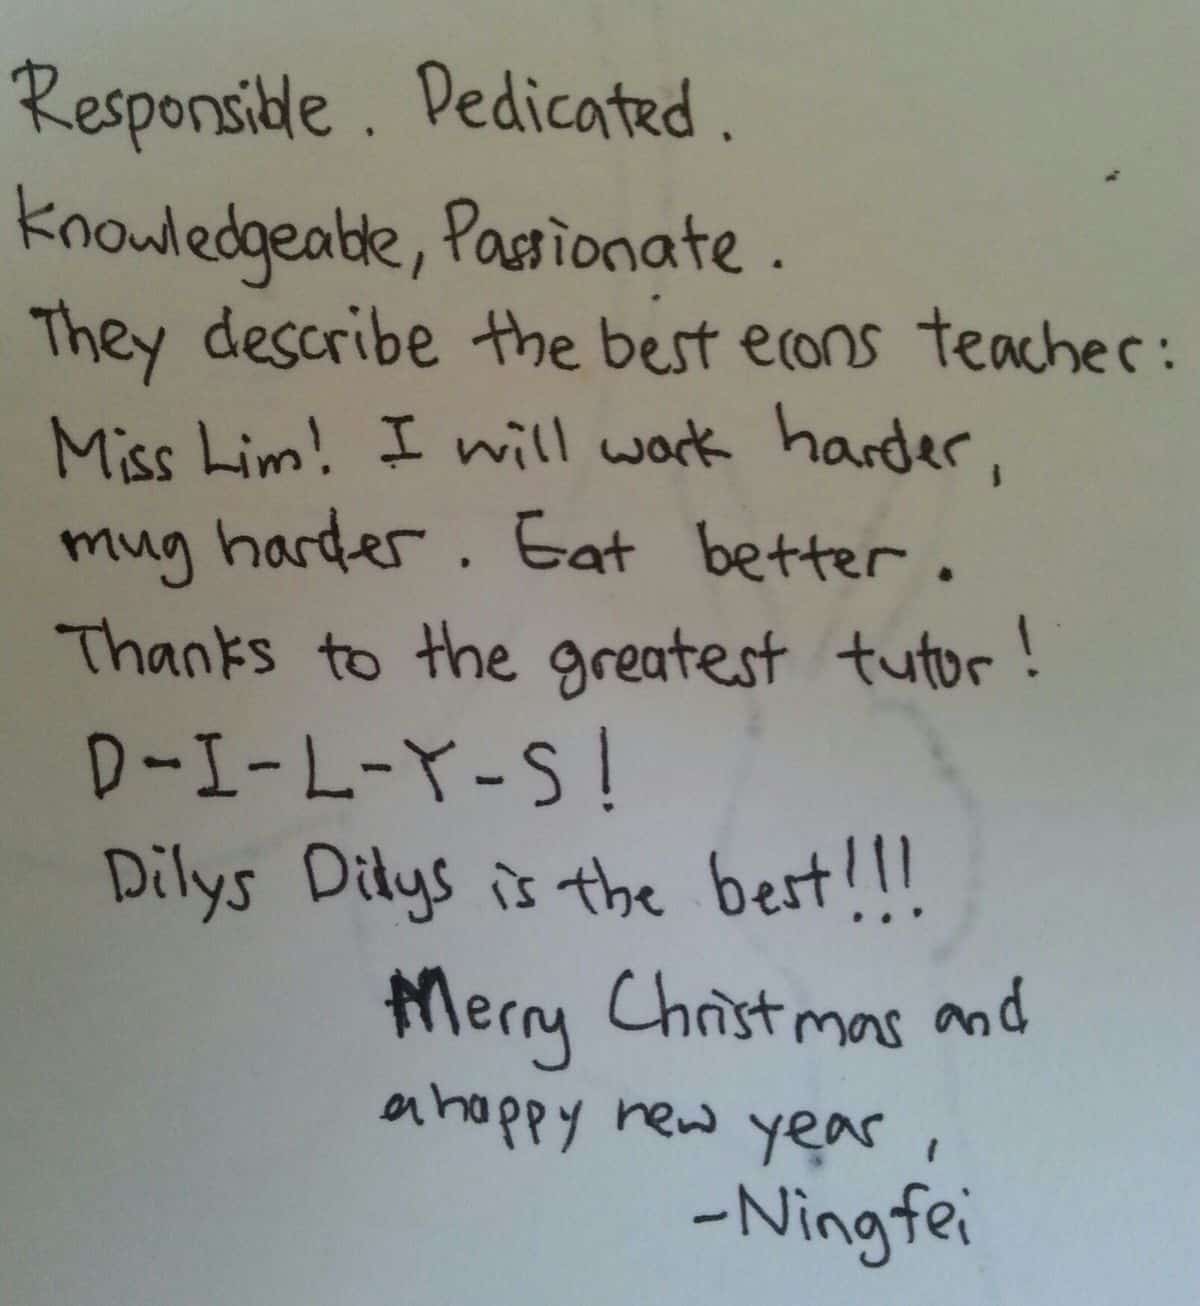 Responsible. Dedicated.
Knowledgeable, Passionate.
They describe the best econs teacher:
Miss Lim! I will work harder,
mug harder. Eat better.
Thanks to the greatest tutor!
D-I-L-Y-S!
Dilys Dilys is the best!!!
Merry Christmas and
a happy new year,
-Ningfei